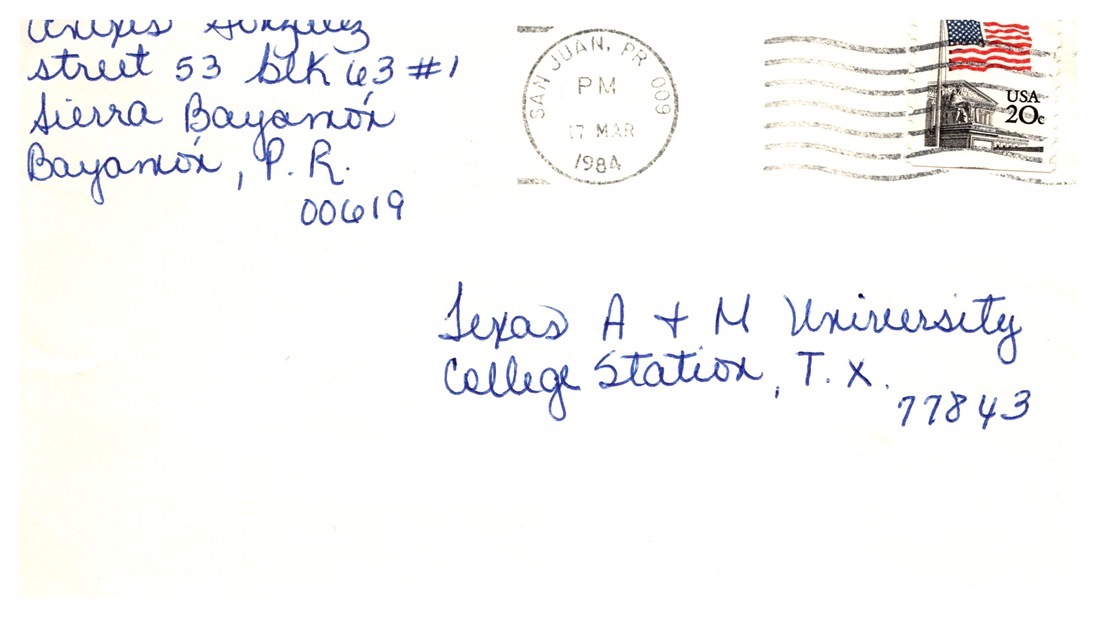 street 53 blk 63 #1
Sierra Bayamón
Bayamón, P. R.
00619
SAN JUAN, PR 009
PM
17 MAR
1984
USA
20c
Texas A + M University
College Station, T. X.
77843